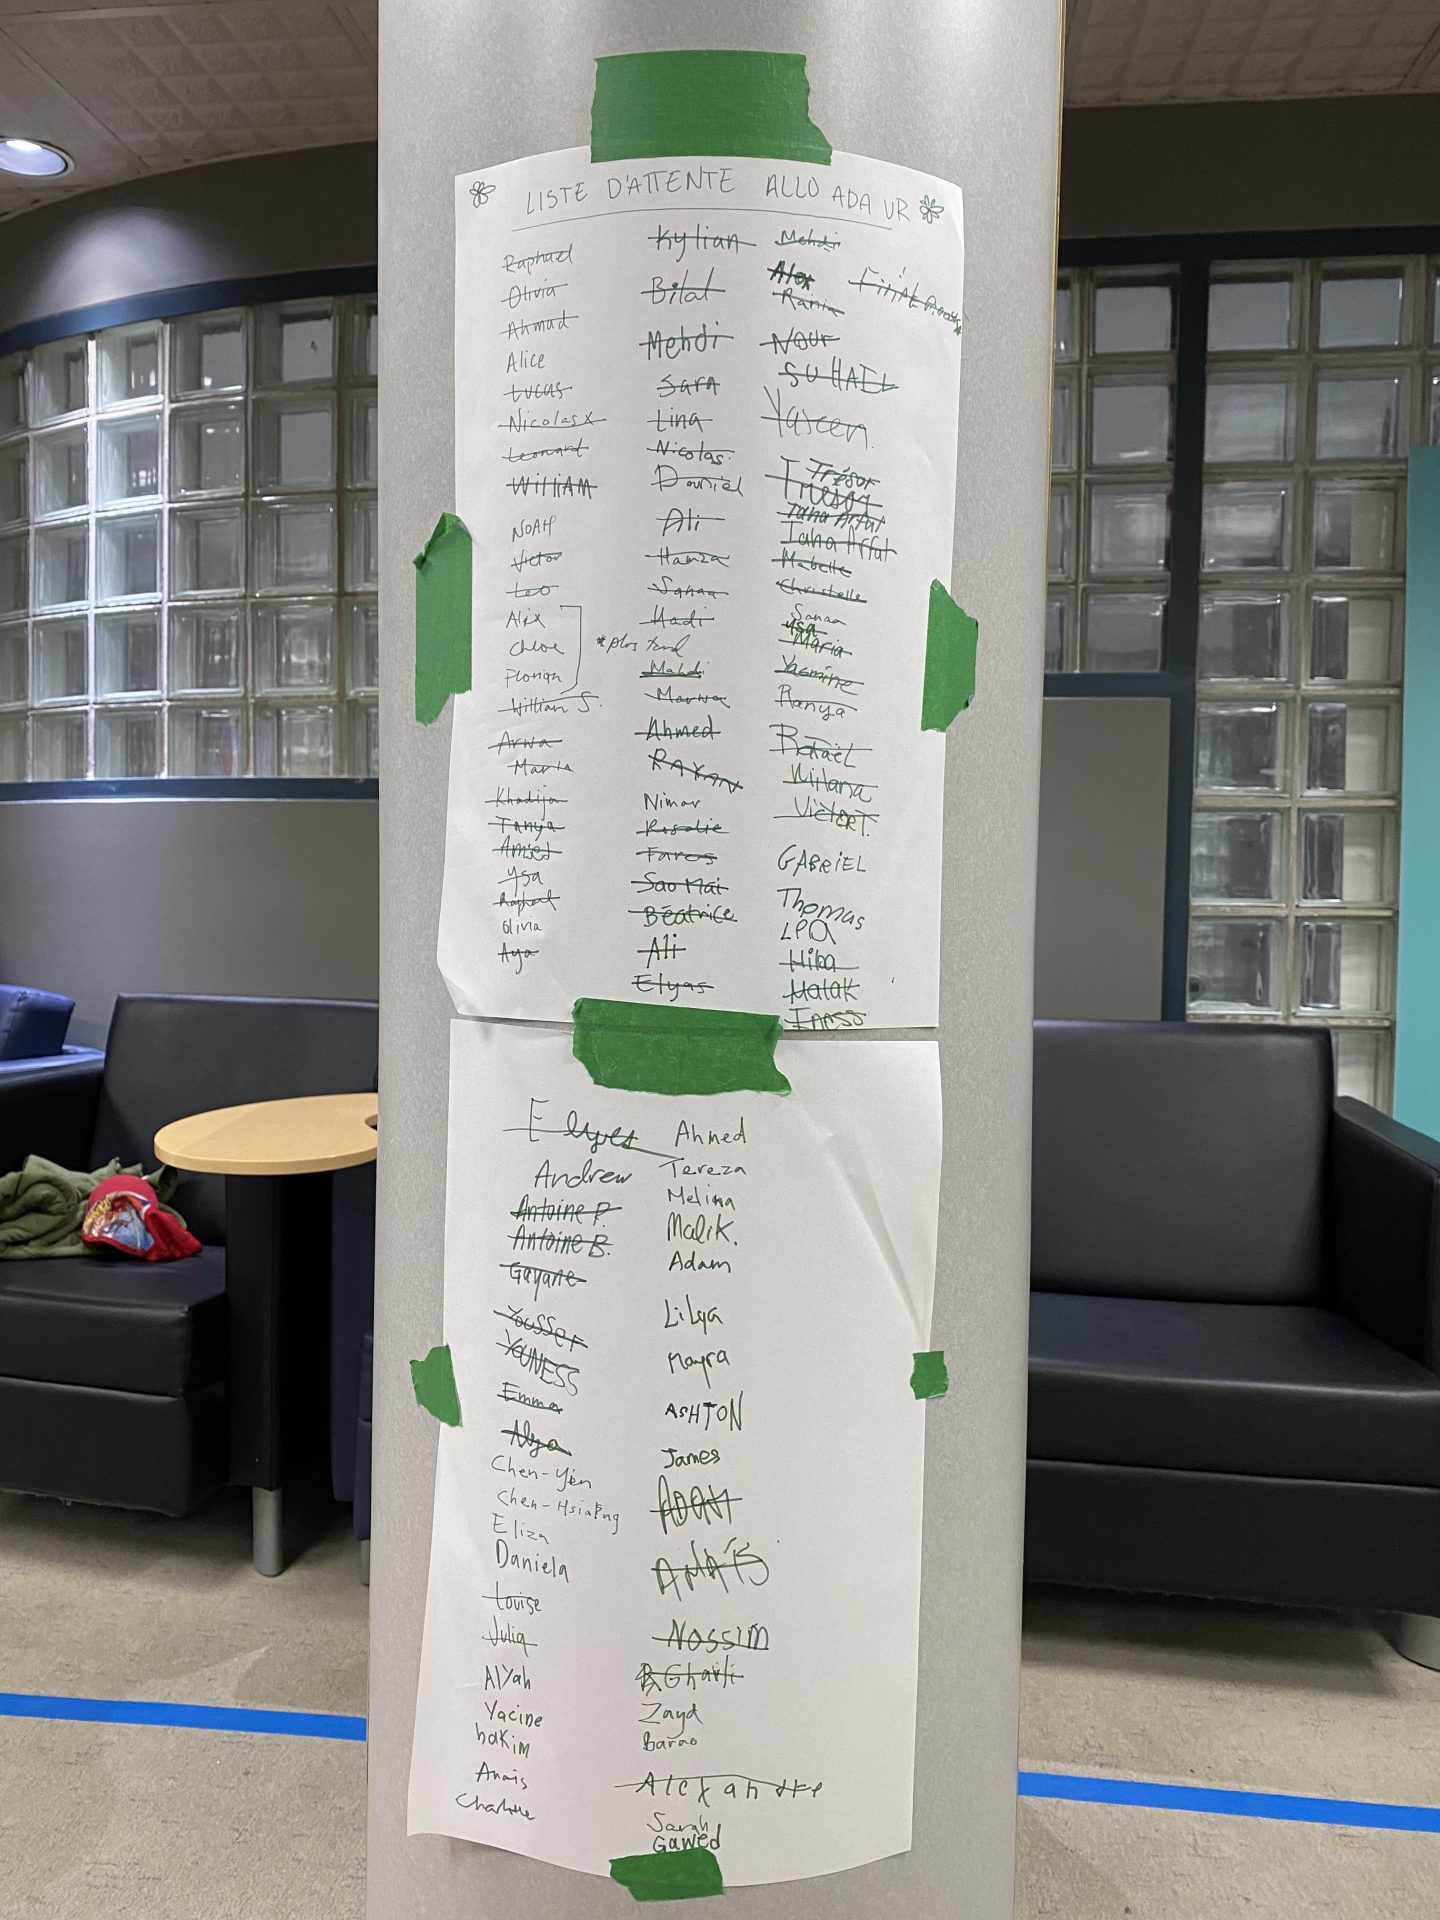 LISTE D'ATTENTE ALLO ADA VR
Raphael
Olivia
Ahmad
Alice
Lucas
Nicolas
Leonard
WilliAM
NOAH
Victor
Leo
Alix
Chloe
Florian
William S.
Arwa
Maria
Khadija
Tanya
Ysa
Raphael
Olivia
Aya
*plus tard
Kylian
Bilal
Mehdi
Sara
Lina
Nicolas
Daniel
Ali
Hamza
Sanaa
Hadi
Mahdi
Marwa
Ahmed
RAYAN
Nimar
Rosalie
Fares
Sao Mai
Béatrice
Ali
Elyas
Mehdi
Alex
Rania
NOUR
SUHAEL
Yascen
Trésor
Taha Arfut
Taha Arfut
Mabelle
Christelle
Sanaa
Ysa
Maria
Yasmine
Ranya
Rafaël
Milana
Victor T.
GABRiEL
Thomas
LéA
Hiba
Malak
Iness
Elyes
Andrew
Antoine P.
Antoine B.
Gayane
Yousser
YOUNESS
Emma
Alya
Chen-Yen
Eliza
Daniela
Louise
Julia
Alyah
Yacine
hakim
Anais
Charlotte
Ahmed
Tereza
Melina
Malik.
Adam
Lilya
Mayra
ASHTON
James
ADAM
ANAÏS
Nossim
Zayd
Barao
Alexandre
Sarah
Gawed